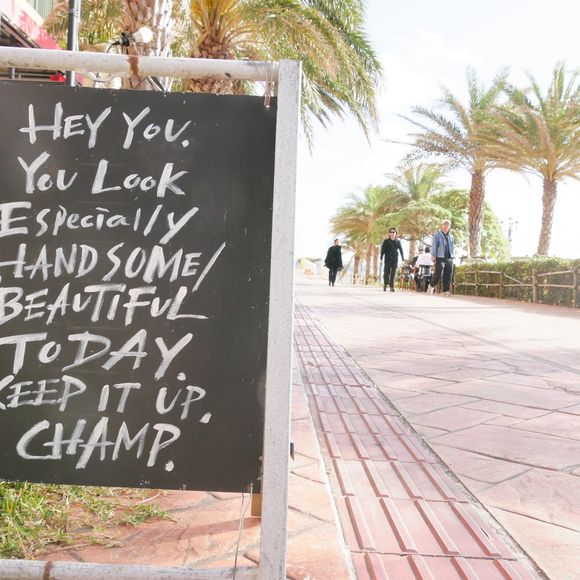 HEY YOU.
YOU LOOK
ESPECIALLY
HANDSOME/
BEAUTIFUL
TODAY.
KEEP IT UP,
CHAMP.